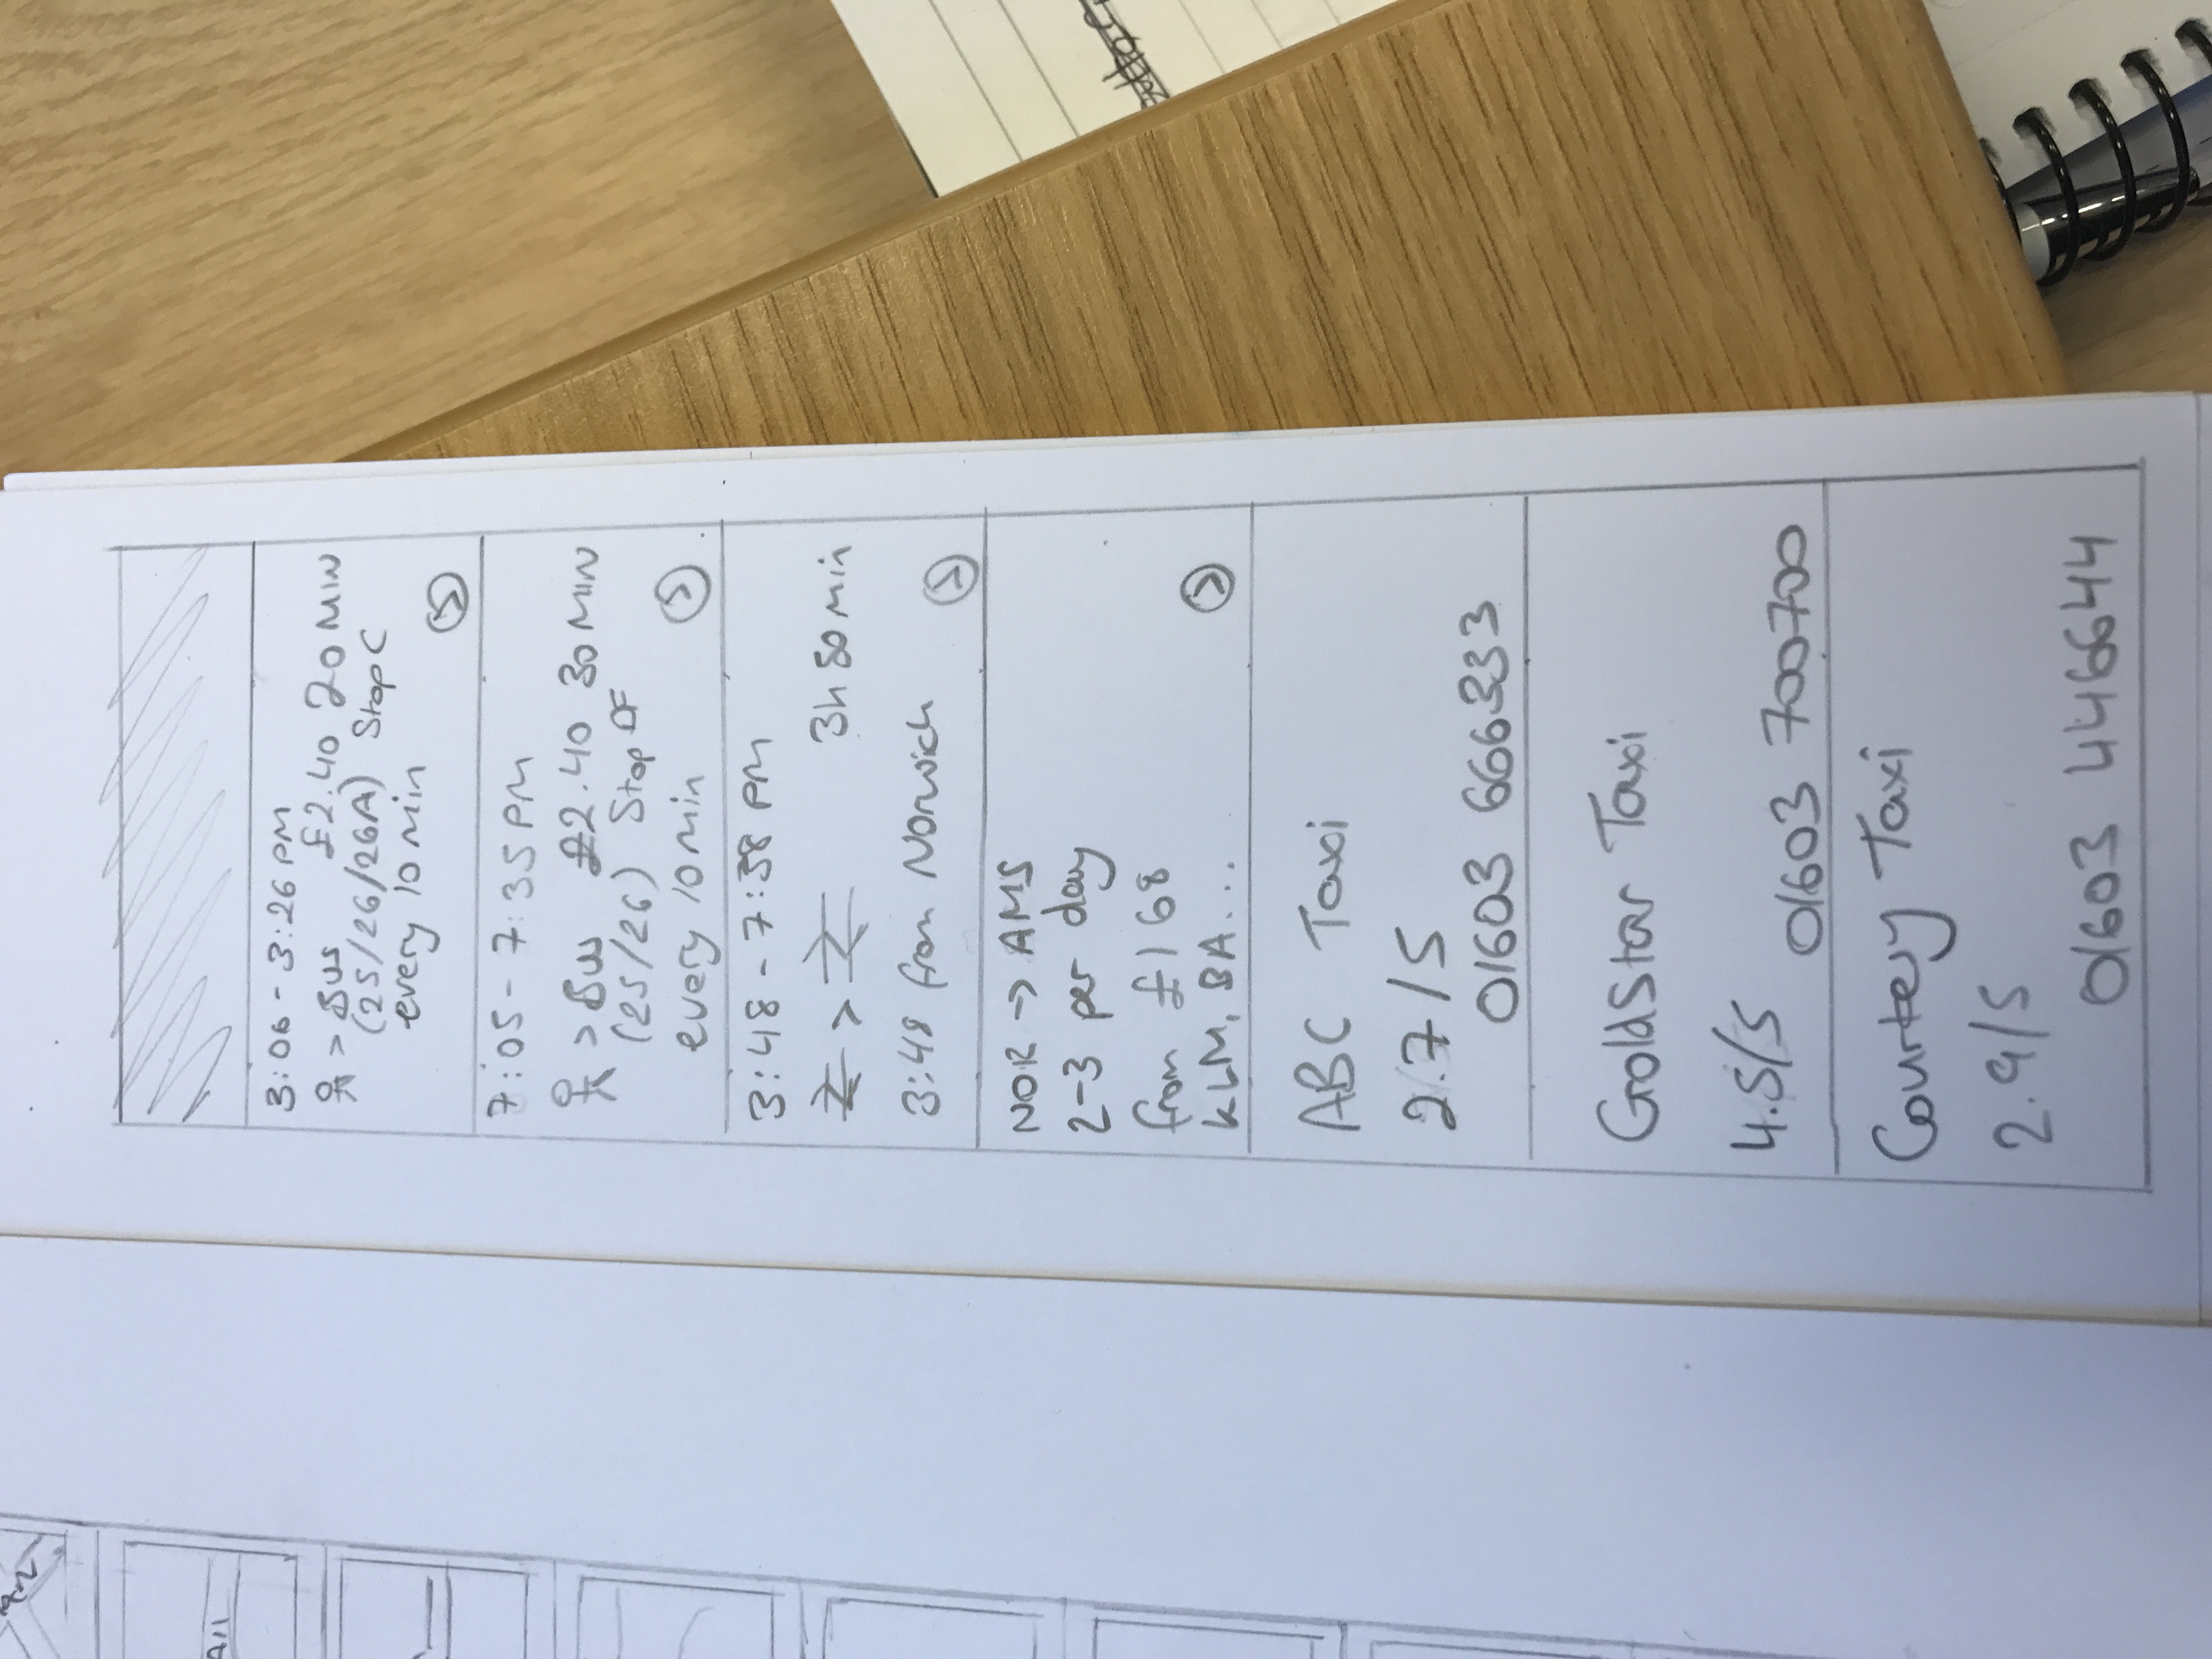 All
3:06 - 3:26 PM
> Bus £2.40 20 MIN
(25/26/26A) Stop C
every 10 min
>
7:05 - 7:35 PM
> Bus £2.40 30 MIN
(25/26) Stop DF
every 10 min
>
3:48 - 7:38 PM
> 3h 50 min
3:48 from Norwich
>
NOR → AMS
2-3 per day
from £168
KLM, BA...
>
ABC Taxi
2.7/5
01603 666333
GoldStar Taxi
4.5/5
01603 700700
Courtesy Taxi
2.9/5
01603 446644